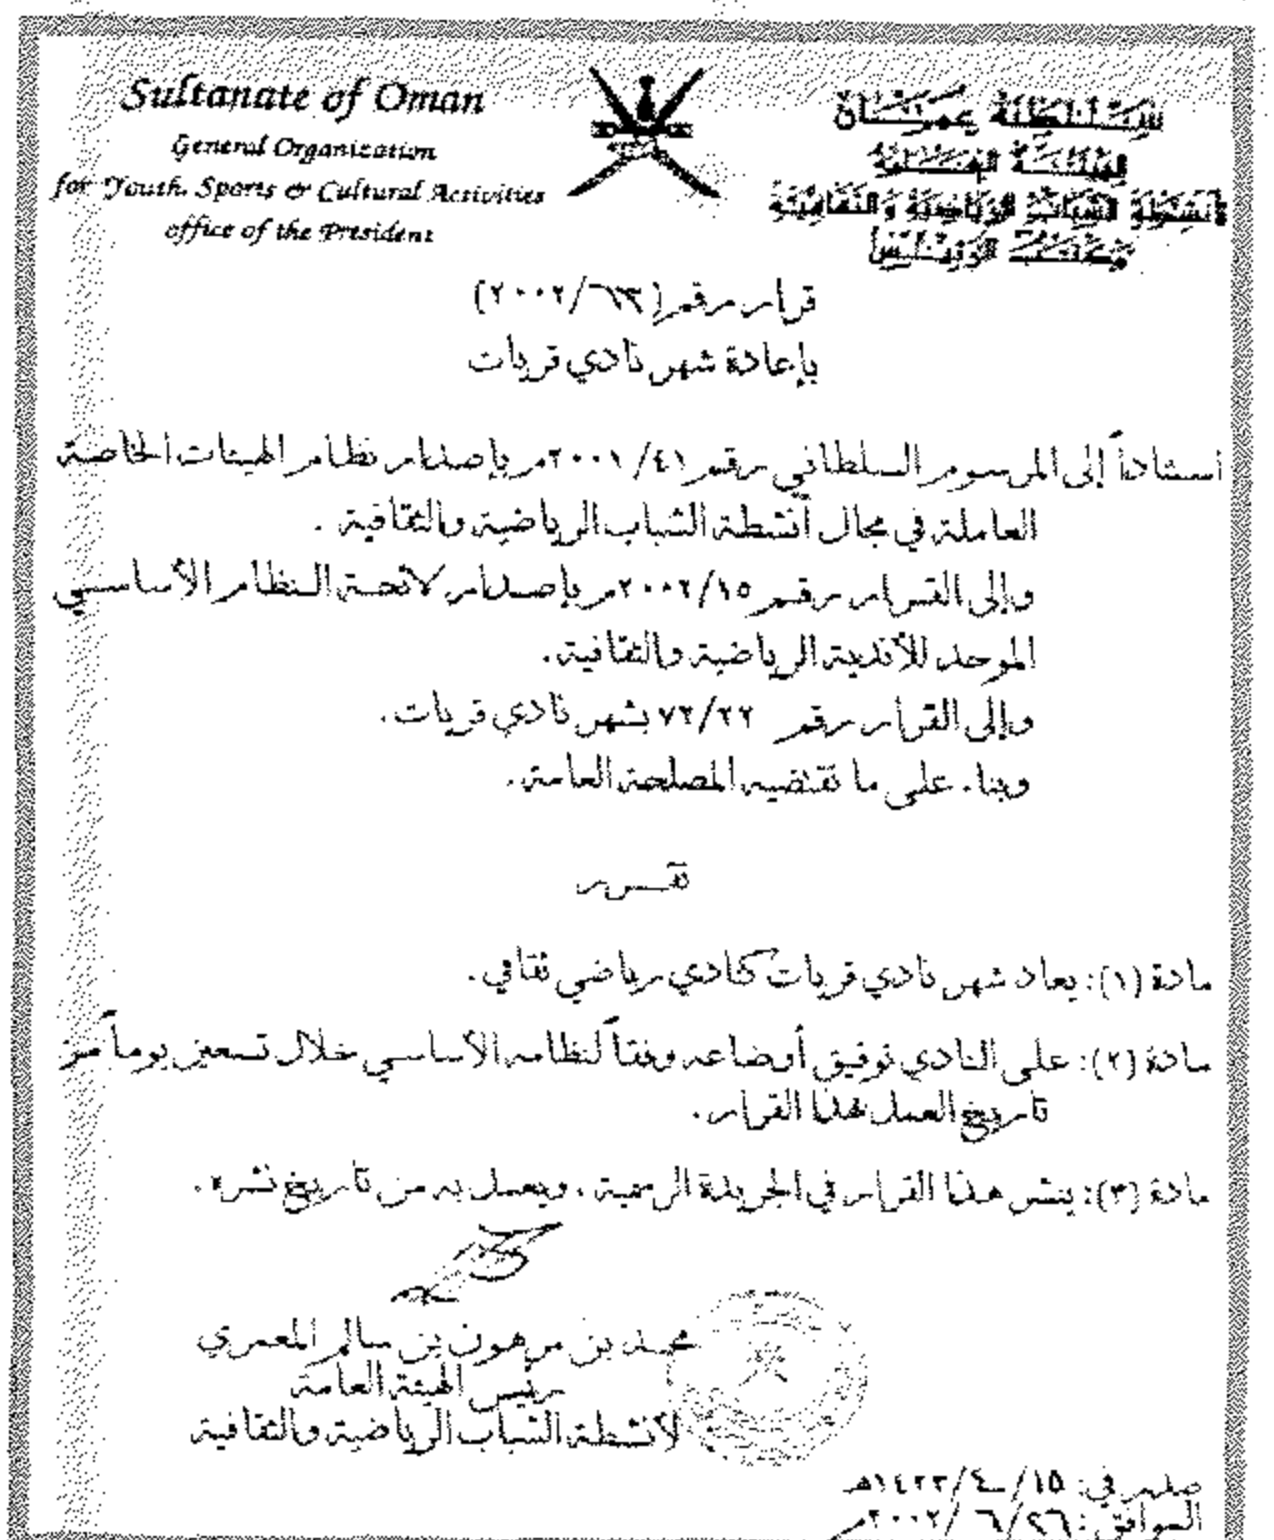 Sultanate of Oman
General Organization
for Youth, Sports & Cultural Activities
office of the President
سلطنة عمان
الهيئة العامة
لأنشطة الشباب الرياضية والثقافية
مكتب الرئيس
قرار رقم (٦٣/٢٠٠٢)
بإعادة شهر نادي قريات
استناداً إلى المرسوم السلطاني رقم ٤١/٢٠٠١م بإصدار نظام الهيئات الخاصة
العاملة في مجال أنشطة الشباب الرياضية والثقافية .
وإلى القرار رقم ١٥/٢٠٠٢م بإصدار لائحة النظام الأساسي
الموحد للأندية الرياضية والثقافية .
وإلى القرار رقم ٧٢/٢٢ بشهر نادي قريات .
وبناء على ما تقتضيه المصلحة العامة .
تقـــرر
مادة (١): يعاد شهر نادي قريات كنادي رياضي ثقافي .
مادة (٢): على النادي توفيق أوضاعه وفقاً لنظامه الأساسي خلال تسعين يوماً من
تاريخ العمل بهذا القرار .
مادة (٣): ينشر هذا القرار في الجريدة الرسمية ، ويعمل به من تاريخ نشره .
محمد بن مرهون بن سالم المعمري
رئيس الهيئة العامة
لأنشطة الشباب الرياضية والثقافية
صدر في: ١٥/٤/١٤٢٣هـ
الموافق: ٢٦/٦/٢٠٠٢م